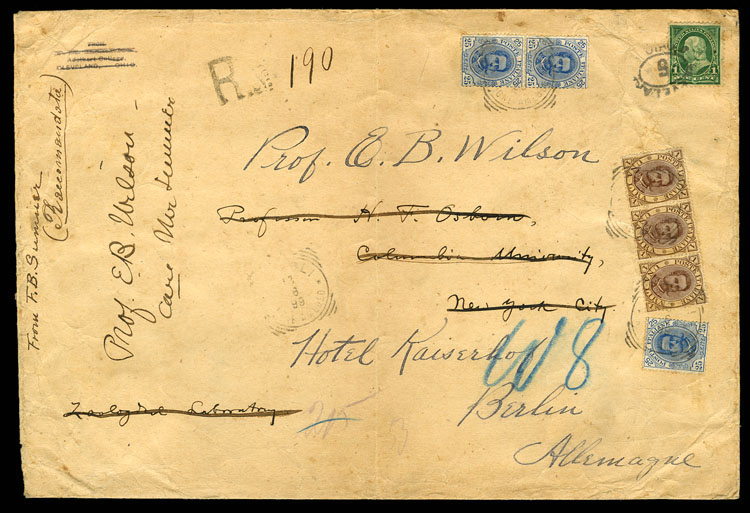 FROM
CLEVELAND, OHIO.
R.
190
Prof. E. B. Wilson
Professor H. F. Osborn,
Columbia University,
New York City
Hotel Kaiserhof
W8
Berlin
Allemagne
Zoological Laboratory
From F. B. Sumner
(Raccomandata)
Prof E B. Wilson
Care
POSTE ITALIANE
25
25
25
1